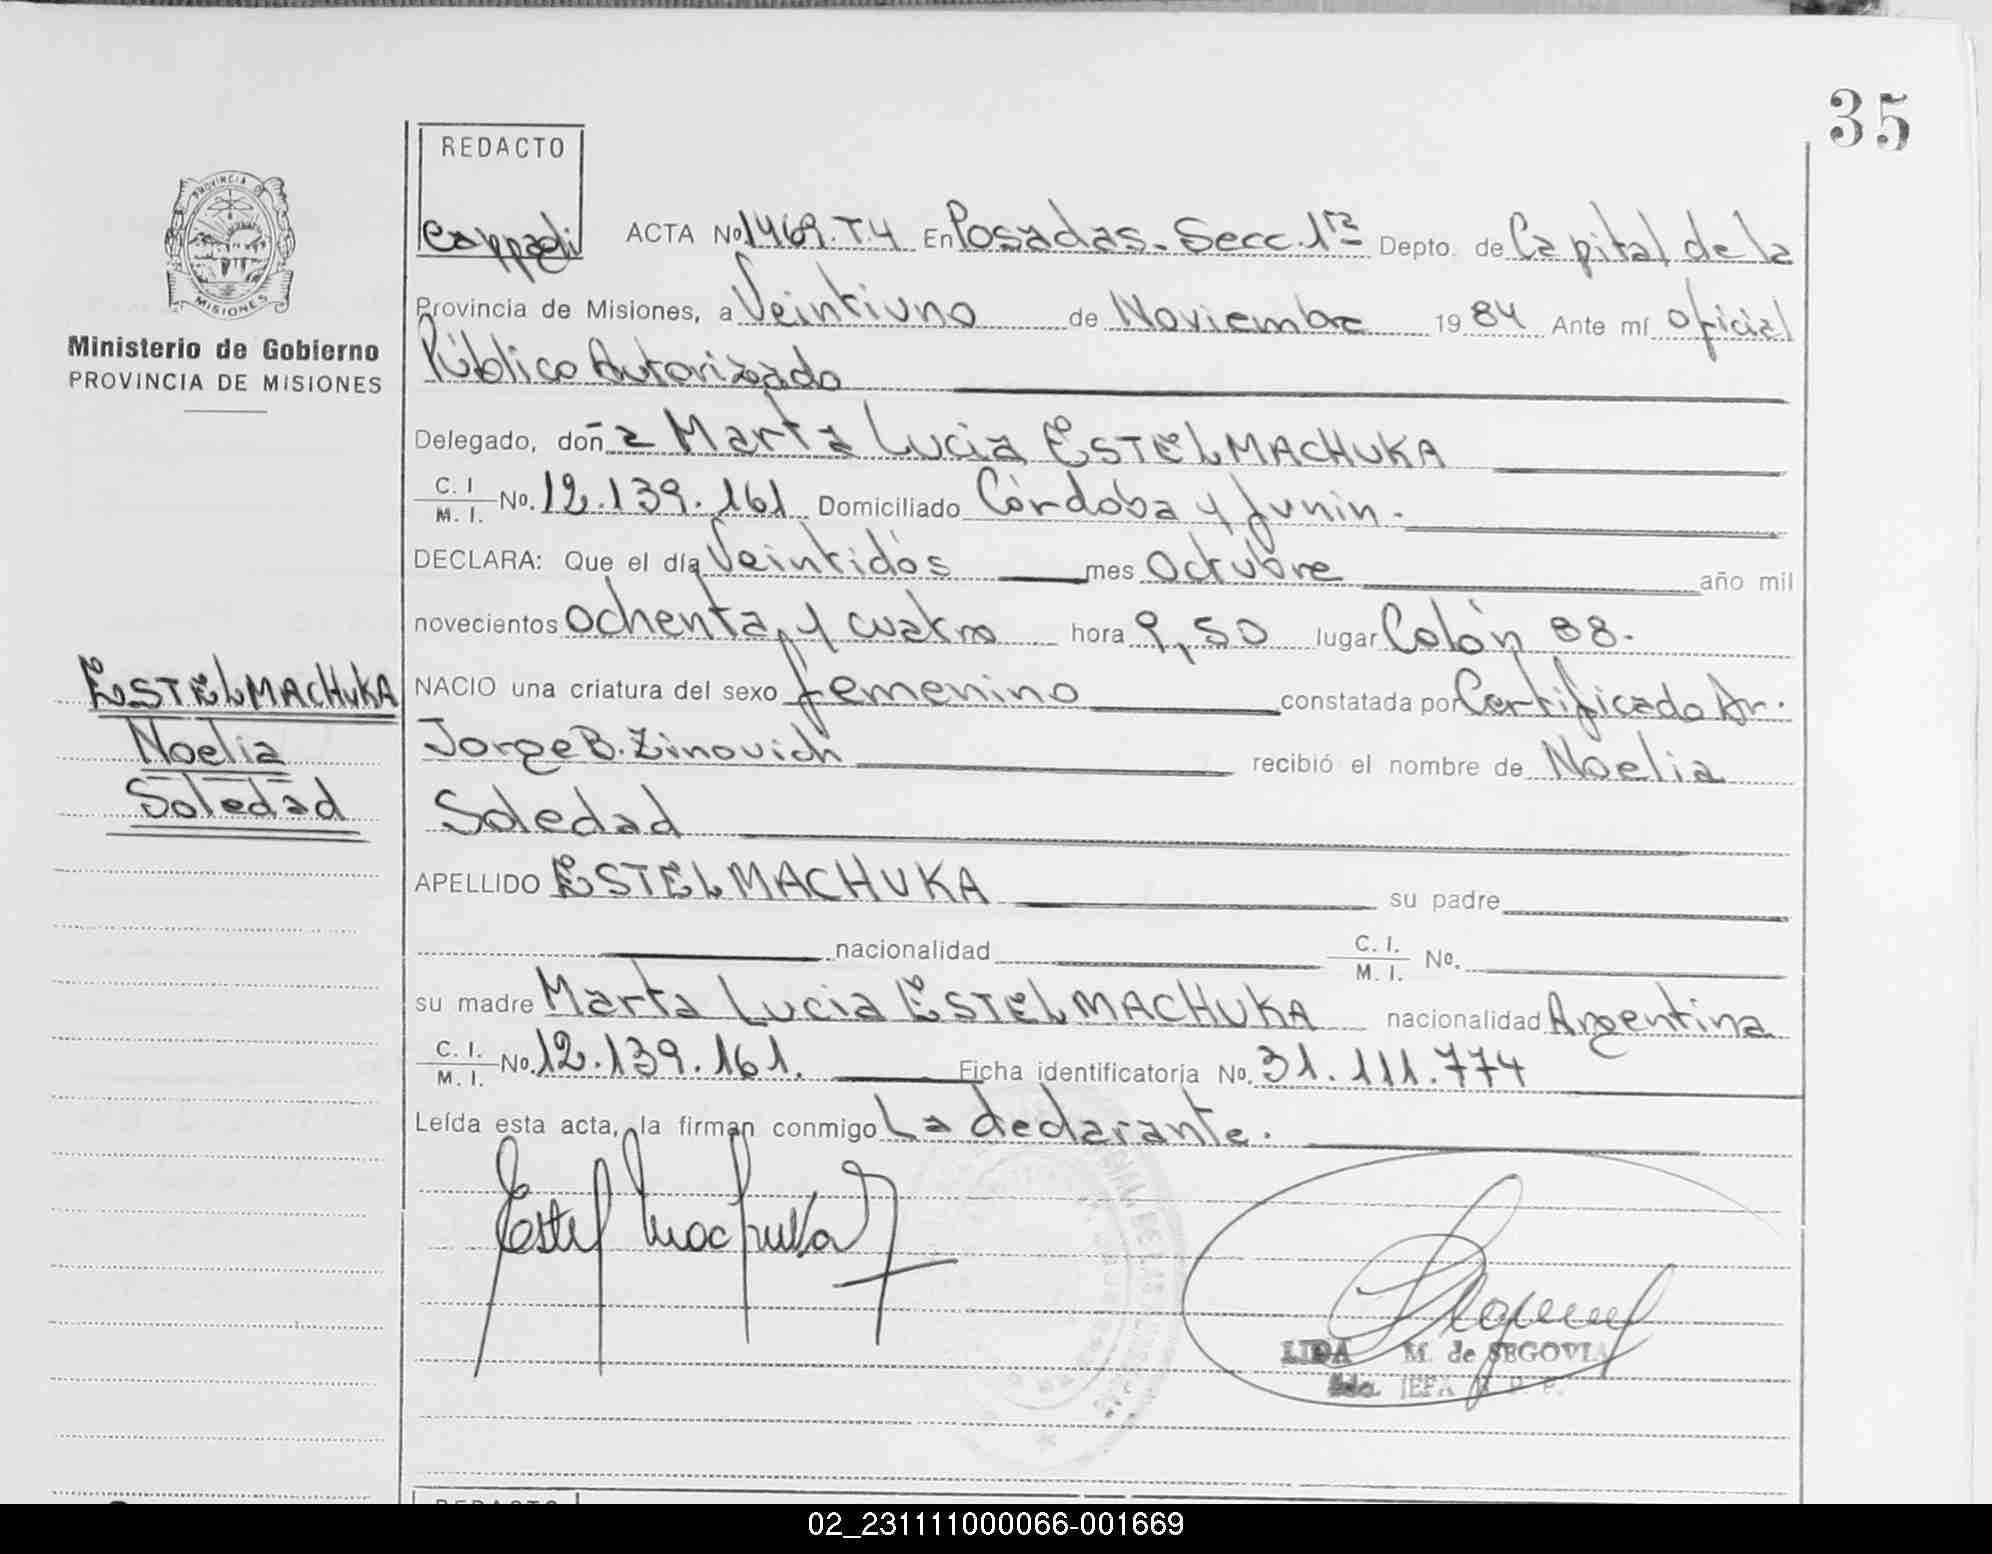 35
REDACTO
PROVINCIA DE
MISIONES
ACTA Nº 1469.T4 En Posadas-Secc.1ra Depto. de Capital de la
Provincia de Misiones, a Veintiuno de Noviembre 19 84 Ante mí oficial
Público Autorizado
Ministerio de Gobierno
PROVINCIA DE MISIONES
Delegado, doña Marta Lucia ESTELMACHUKA
C. I. / M. I. No. 12.139.161 Domiciliado Córdoba y Junin.-
DECLARA: Que el día Veintidós mes Octubre año mil
novecientos ochenta y cuatro hora 9,50 lugar Colón 88.
NACIO una criatura del sexo femenino constatada por Certificado Dr.
Jorge B. Zinovich recibió el nombre de Noelia
Soledad
ESTELMACHUKA
Noelia
Soledad
APELLIDO ESTELMACHUKA su padre
nacionalidad C. I. / M. I. No.
su madre Marta Lucia ESTELMACHUKA nacionalidad Argentina
C. I. / M. I. No. 12.139.161. Ficha identificatoria No. 31.111.774
Leída esta acta, la firman conmigo La declarante.
Estelmachuka
LIDA M. de SEGOVIA
2da. JEFA R. P. P.
REDACTO
02_231111000066-001669